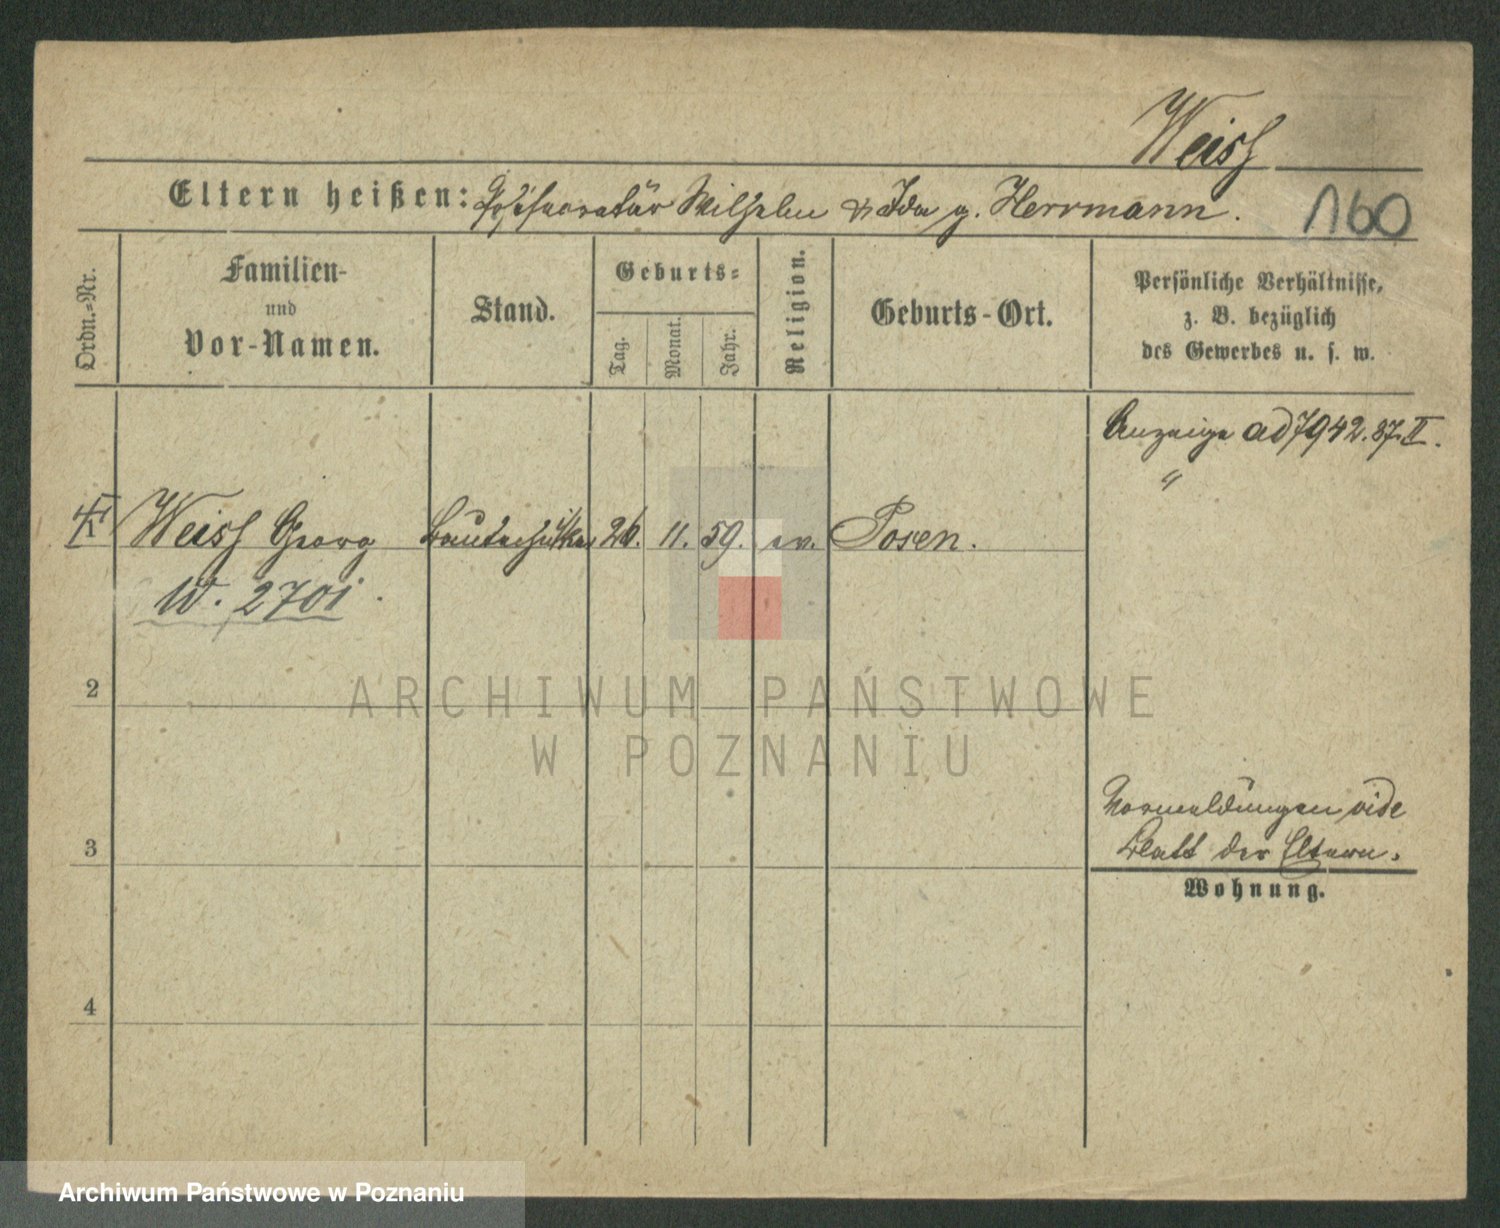 Weiss
Eltern heißen: Wilhelm & Ida g. Herrmann.
160
Ordn.=Nr.
Familien-
und
Vor-Namen.
Stand.
Geburts=
Tag.
Monat.
Jahr.
Religion.
Geburts-Ort.
Persönliche Verhältnisse,
z. B. bezüglich
des Gewerbes u. s. w.
Anzeige ad 7942.87.II.
"
Weiss Georg 26. 11. 59. ev. Posen.
W. 2701.
2
ARCHIWUM PAŃSTWOWE
W POZNANIU
Vormeldungen vide
3
Blatt der Eltern.
Wohnung.
4
Archiwum Państwowe w Poznaniu